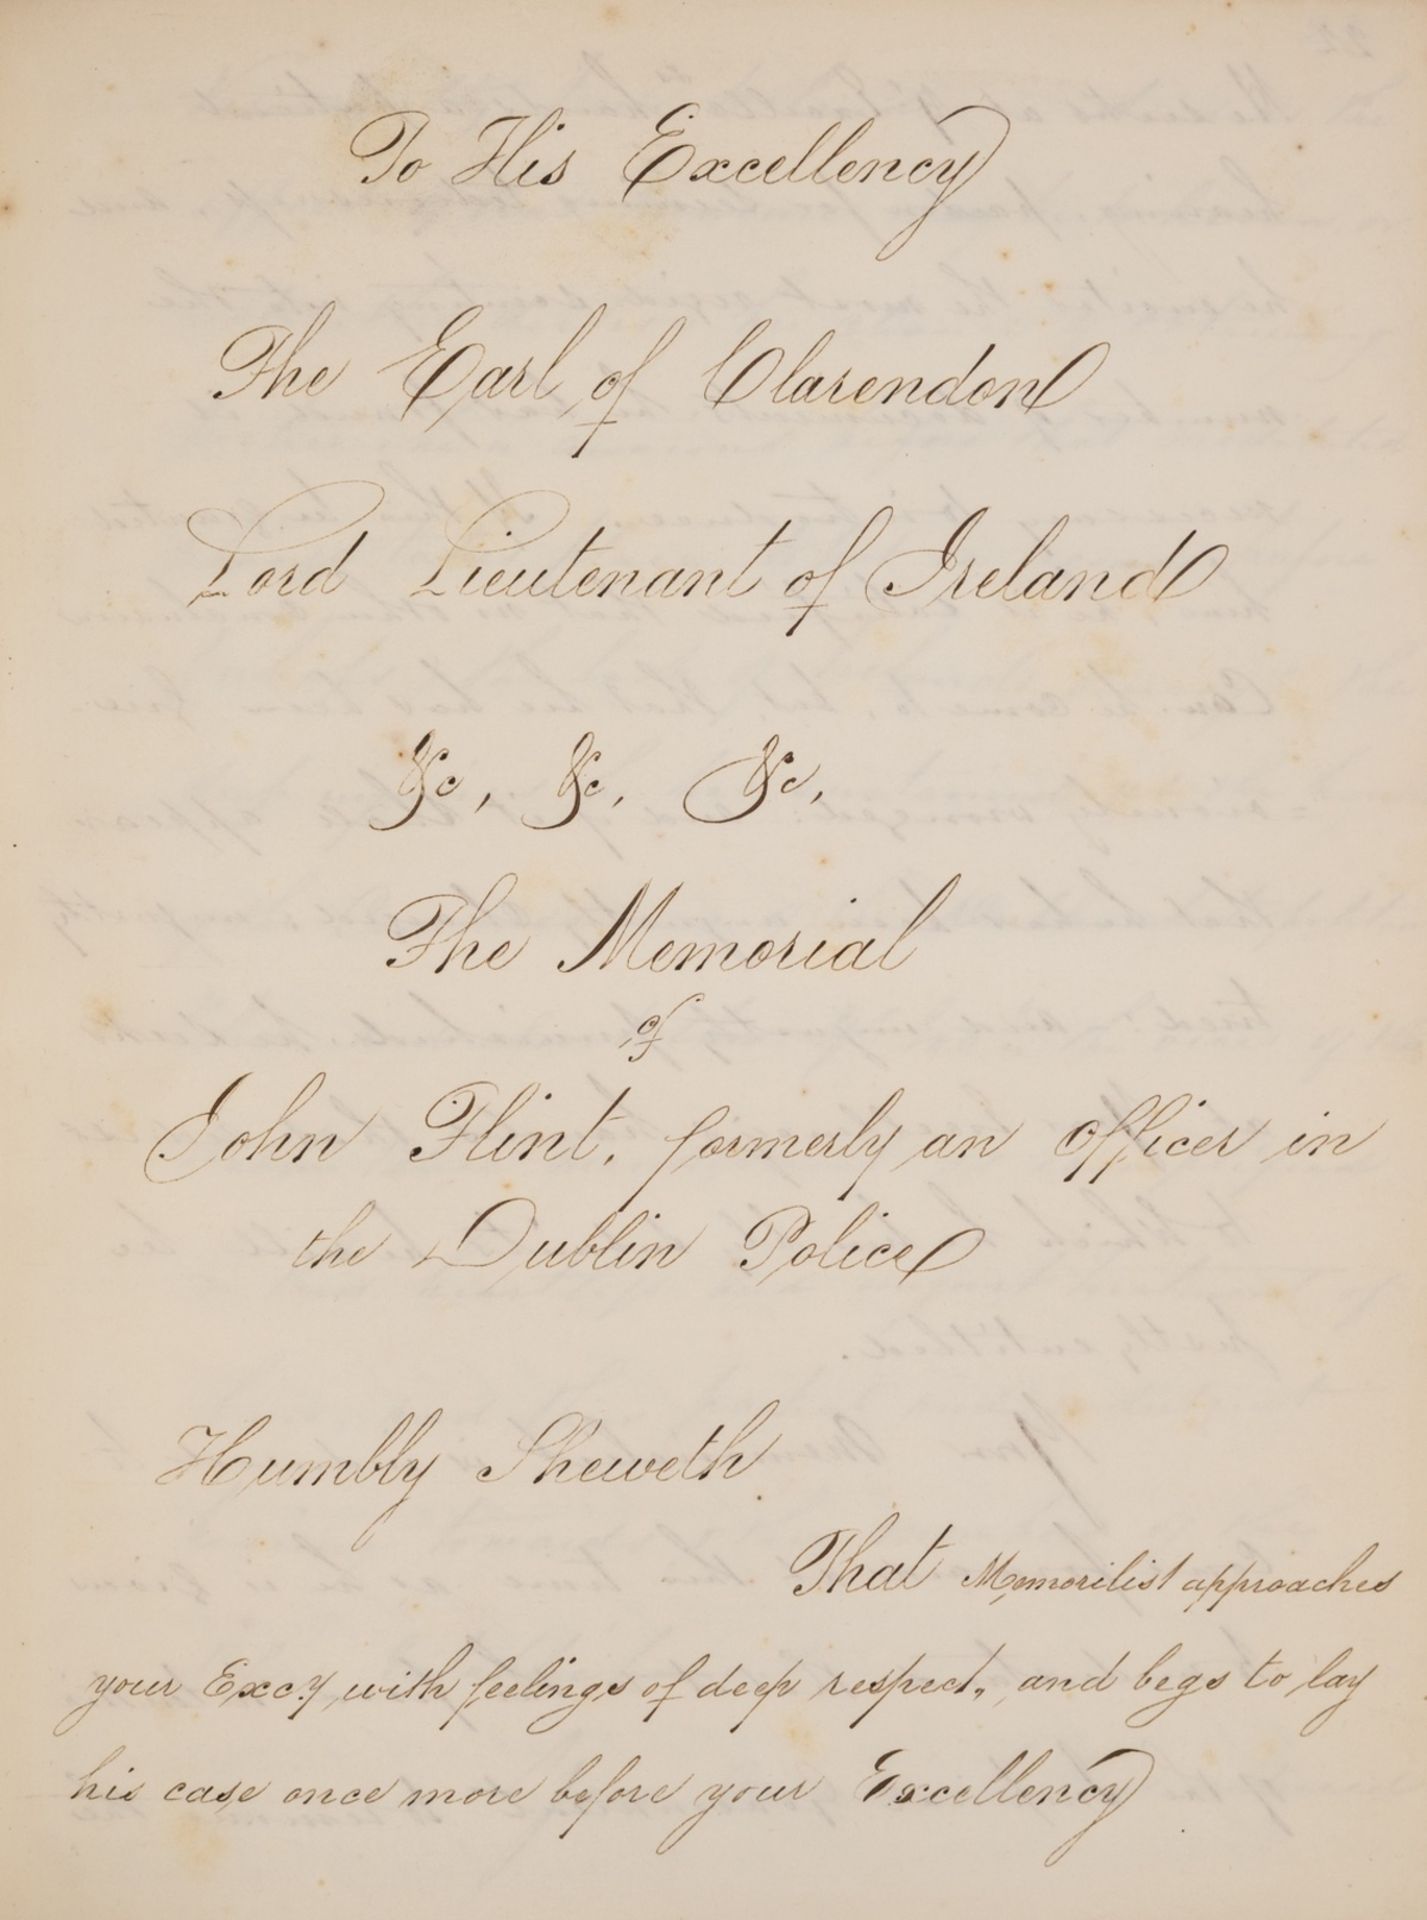 To His Excellency
The Earl of Clarendon
Lord Lieutenant of Ireland
&c, &c, &c,
The Memorial
of
John Flint, formerly an Officer in
the Dublin Police
Humbly Sheweth
That Memorilist approaches
your Excy with feelings of deep respect, and begs to lay
his case once more before your Excellency